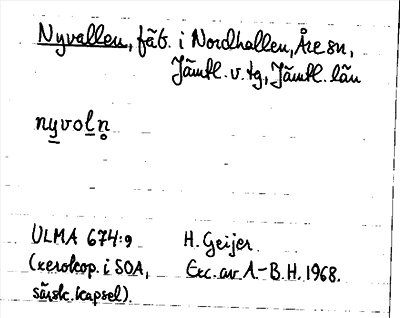 Nyvallen, fäb. i Nordhallen, Åre sn,
Jämtl. v. tg, Jämtl. län
nyvoln̥
ULMA 674:9 H. Geijer
(xerokop. i SOA, Exc. av A-B.H. 1968.
särsk. kapsel).